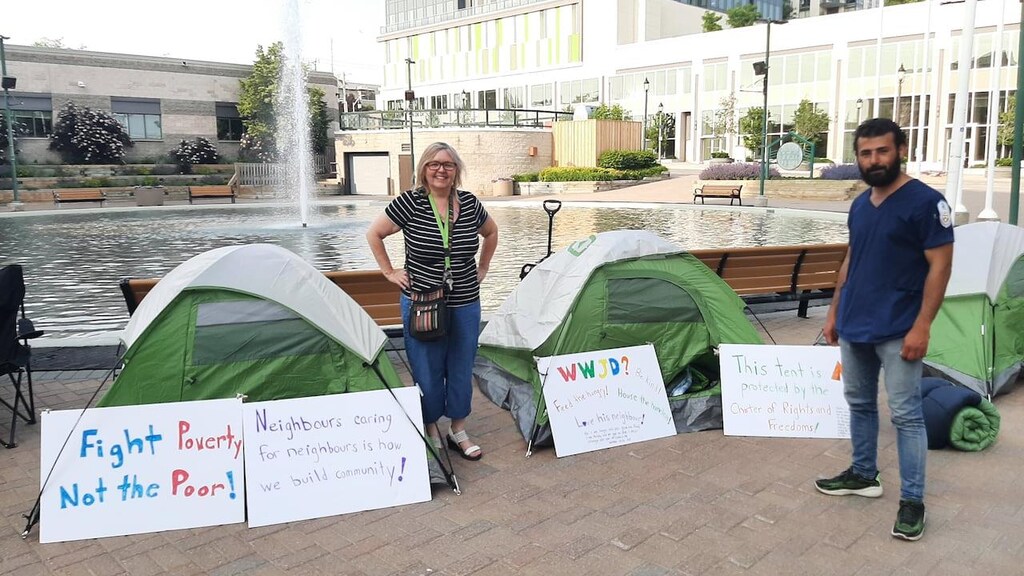 Fight Poverty
Not the Poor!
Neighbours caring
for neighbours is how
we build community!
WWJD?
Feed the hungry!
House the
Love his neighbour
This tent is
protected by the
Charter of Rights and
Freedoms!